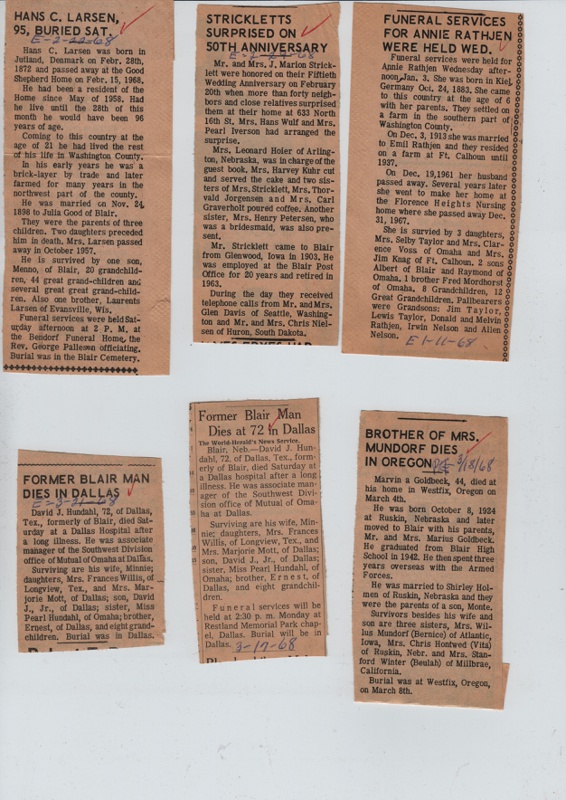 HANS C. LARSEN,
95, BURIED SAT.
E-2-22-68
Hans C. Larsen was born in
Jutland, Denmark on Febr. 28th,
1872 and passed away at the Good
Shepherd Home on Febr. 15, 1968.
He had been a resident of the
Home since May of 1958. Had
he live until the 28th of this
month he would have been 96
years of age.
Coming to this country at the
age of 21 he had lived the rest
of his life in Washington County.
In his early years he was a
brick-layer by trade and later
farmed for many years in the
northwest part of the county.
He was married on Nov. 24,
1898 to Julia Good of Blair.
They were the parents of three
children. Two daughters preceded
him in death, Mrs. Larsen passed
away in October 1957.
He is survived by one son,
Menno, of Blair, 20 grandchild-
ren, 44 great grand-children and
several great great grand-child-
ren. Also one brother, Laurents
Larsen of Evansville, Wis.
Funeral services were held Sat-
urday afternoon at 2 P. M. at
the Bendorf Funeral Home, the
Rev. George Pallesen officiating.
Burial was in the Blair Cemetery.
STRICKLETTS
SURPRISED ON
50TH ANNIVERSARY
Mr. and Mrs. J. Marion Strick-
lett were honored on their Fiftieth
Wedding Anniversary on February
20th when more than forty neigh-
bors and close relatives surprised
them at their home at 633 North
16th St. Mrs. Hans Wulf and Mrs.
Pearl Iverson had arranged the
surprise.
Mrs. Leonard Hoier of Arling-
ton, Nebraska, was in charge of the
guest book. Mrs. Harvey Kuhr cut
and served the cake and two sis-
ters of Mrs. Stricklett, Mrs. Thor-
vald Jorgensen and Mrs. Carl
Graverholt poured coffee. Another
sister, Mrs. Henry Petersen, who
was a bridesmaid, was also pre-
sent.
Mr. Stricklett came to Blair
from Glenwood, Iowa in 1903. He
was employed at the Blair Post
Office for 20 years and retired in
1963.
During the day they received
telephone calls from Mr. and Mrs.
Glen Davis of Seattle, Washing-
ton and Mr. and Mrs. Chris Niel-
sen of Huron, South Dakota.
FUNERAL SERVICES
FOR ANNIE RATHJEN
WERE HELD WED.
Funeral services were held for
Annie Rathjen Wednesday after-
noon, Jan. 3. She was born in Kiel,
Germany Oct, 24, 1883. She came
to this country at the age of 6
with her parents. They settled on
a farm in the southern part of
Washington County.
On Dec. 3, 1913 she was married
to Emil Rathjen and they resided
on a farm at Ft. Calhoun until
1937.
On Dec. 19,1961 her husband
passed away. Several years later
she went to make her home at
the Florence Heights Nursing
home where she passed away Dec.
31, 1967.
She is survied by 3 daughters,
Mrs. Selby Taylor and Mrs. Clar-
ence Voss of Omaha and Mrs.
Jim Knag of Ft. Calhoun. 2 sons
Albert of Blair and Raymond of
Omaha, 1 brother Fred Mordhorst
of Omaha, 8 Grandchildren, 12
Great Grandchildren, Pallbearers
were Grandsons: Jim Taylor,
Lewis Taylor, Donald and Melvin
Rathjen, Irwin Nelson and Allen
Nelson.
E 1-11-68
FORMER BLAIR MAN
DIES IN DALLAS
David J. Hundahl, 72, of Dallas,
Tex., formerly of Blair, died Sat-
urday at a Dallas Hospital after
a long illness. He was associate
manager of the Southwest Division
office of Mutual of Omaha at Dallas.
Surviving are his wife, Minnie;
daughters, Mrs. Frances Willis, of
Longview, Tex, and Mrs. Mar-
jorie Mott, of Dallas; son, David
J., Jr., of Dallas; sister, Miss
Pearl Hundahl, of Omaha; brother,
Ernest, of Dallas, and eight grand-
children. Burial was in Dallas.
Former Blair Man
Dies at 72 in Dallas
The World-Herald's News Service.
Blair, Neb.—David J. Hun-
dahl, 72, of Dallas, Tex., form-
erly of Blair, died Saturday at
a Dallas hospital after a long
illness. He was associate man-
ager of the Southwest Divi-
sion office of Mutual of Oma-
ha at Dallas.
Surviving are his wife, Min-
nie; daughters, Mrs. Frances
Willis of Longview, Tex., and
Mrs. Marjorie Mott, of Dallas;
son, David J., Jr., of Dallas;
sister, Miss Pearl Hundahl, of
Omaha; brother, Ernest, of
Dallas, and eight grandchil-
dren.
Funeral services will be
held at 2:30 p. m. Monday at
Restland Memorial Park chap-
el, Dallas. Burial will be in
Dallas.
3-17-68
BROTHER OF MRS.
MUNDORF DIES
IN OREGON
3/18/68
Marvin a Goldbeck, 44, died at
his home in Westfix, Oregon on
March 4th.
He was born October 8, 1924
at Ruskin, Nebraska and later
moved to Blair with his parents,
Mr. and Mrs. Marius Goldbeck.
He graduated from Blair High
School in 1942. He then spent three
years overseas with the Armed
Forces.
He was married to Shirley Hol-
men of Ruskin, Nebraska and they
were the parents of a son, Monte.
Survivors besides his wife and
son are three sisters, Mrs. Wil-
lus Mundorf (Bernice) of Atlantic,
Iowa, Mrs. Chris Hontwed (Vits)
of Ruskin, Nebr. and Mrs. Stan-
ford Winter (Beulah) of Millbrae,
California.
Burial was at Westfix, Oregon,
on March 8th.